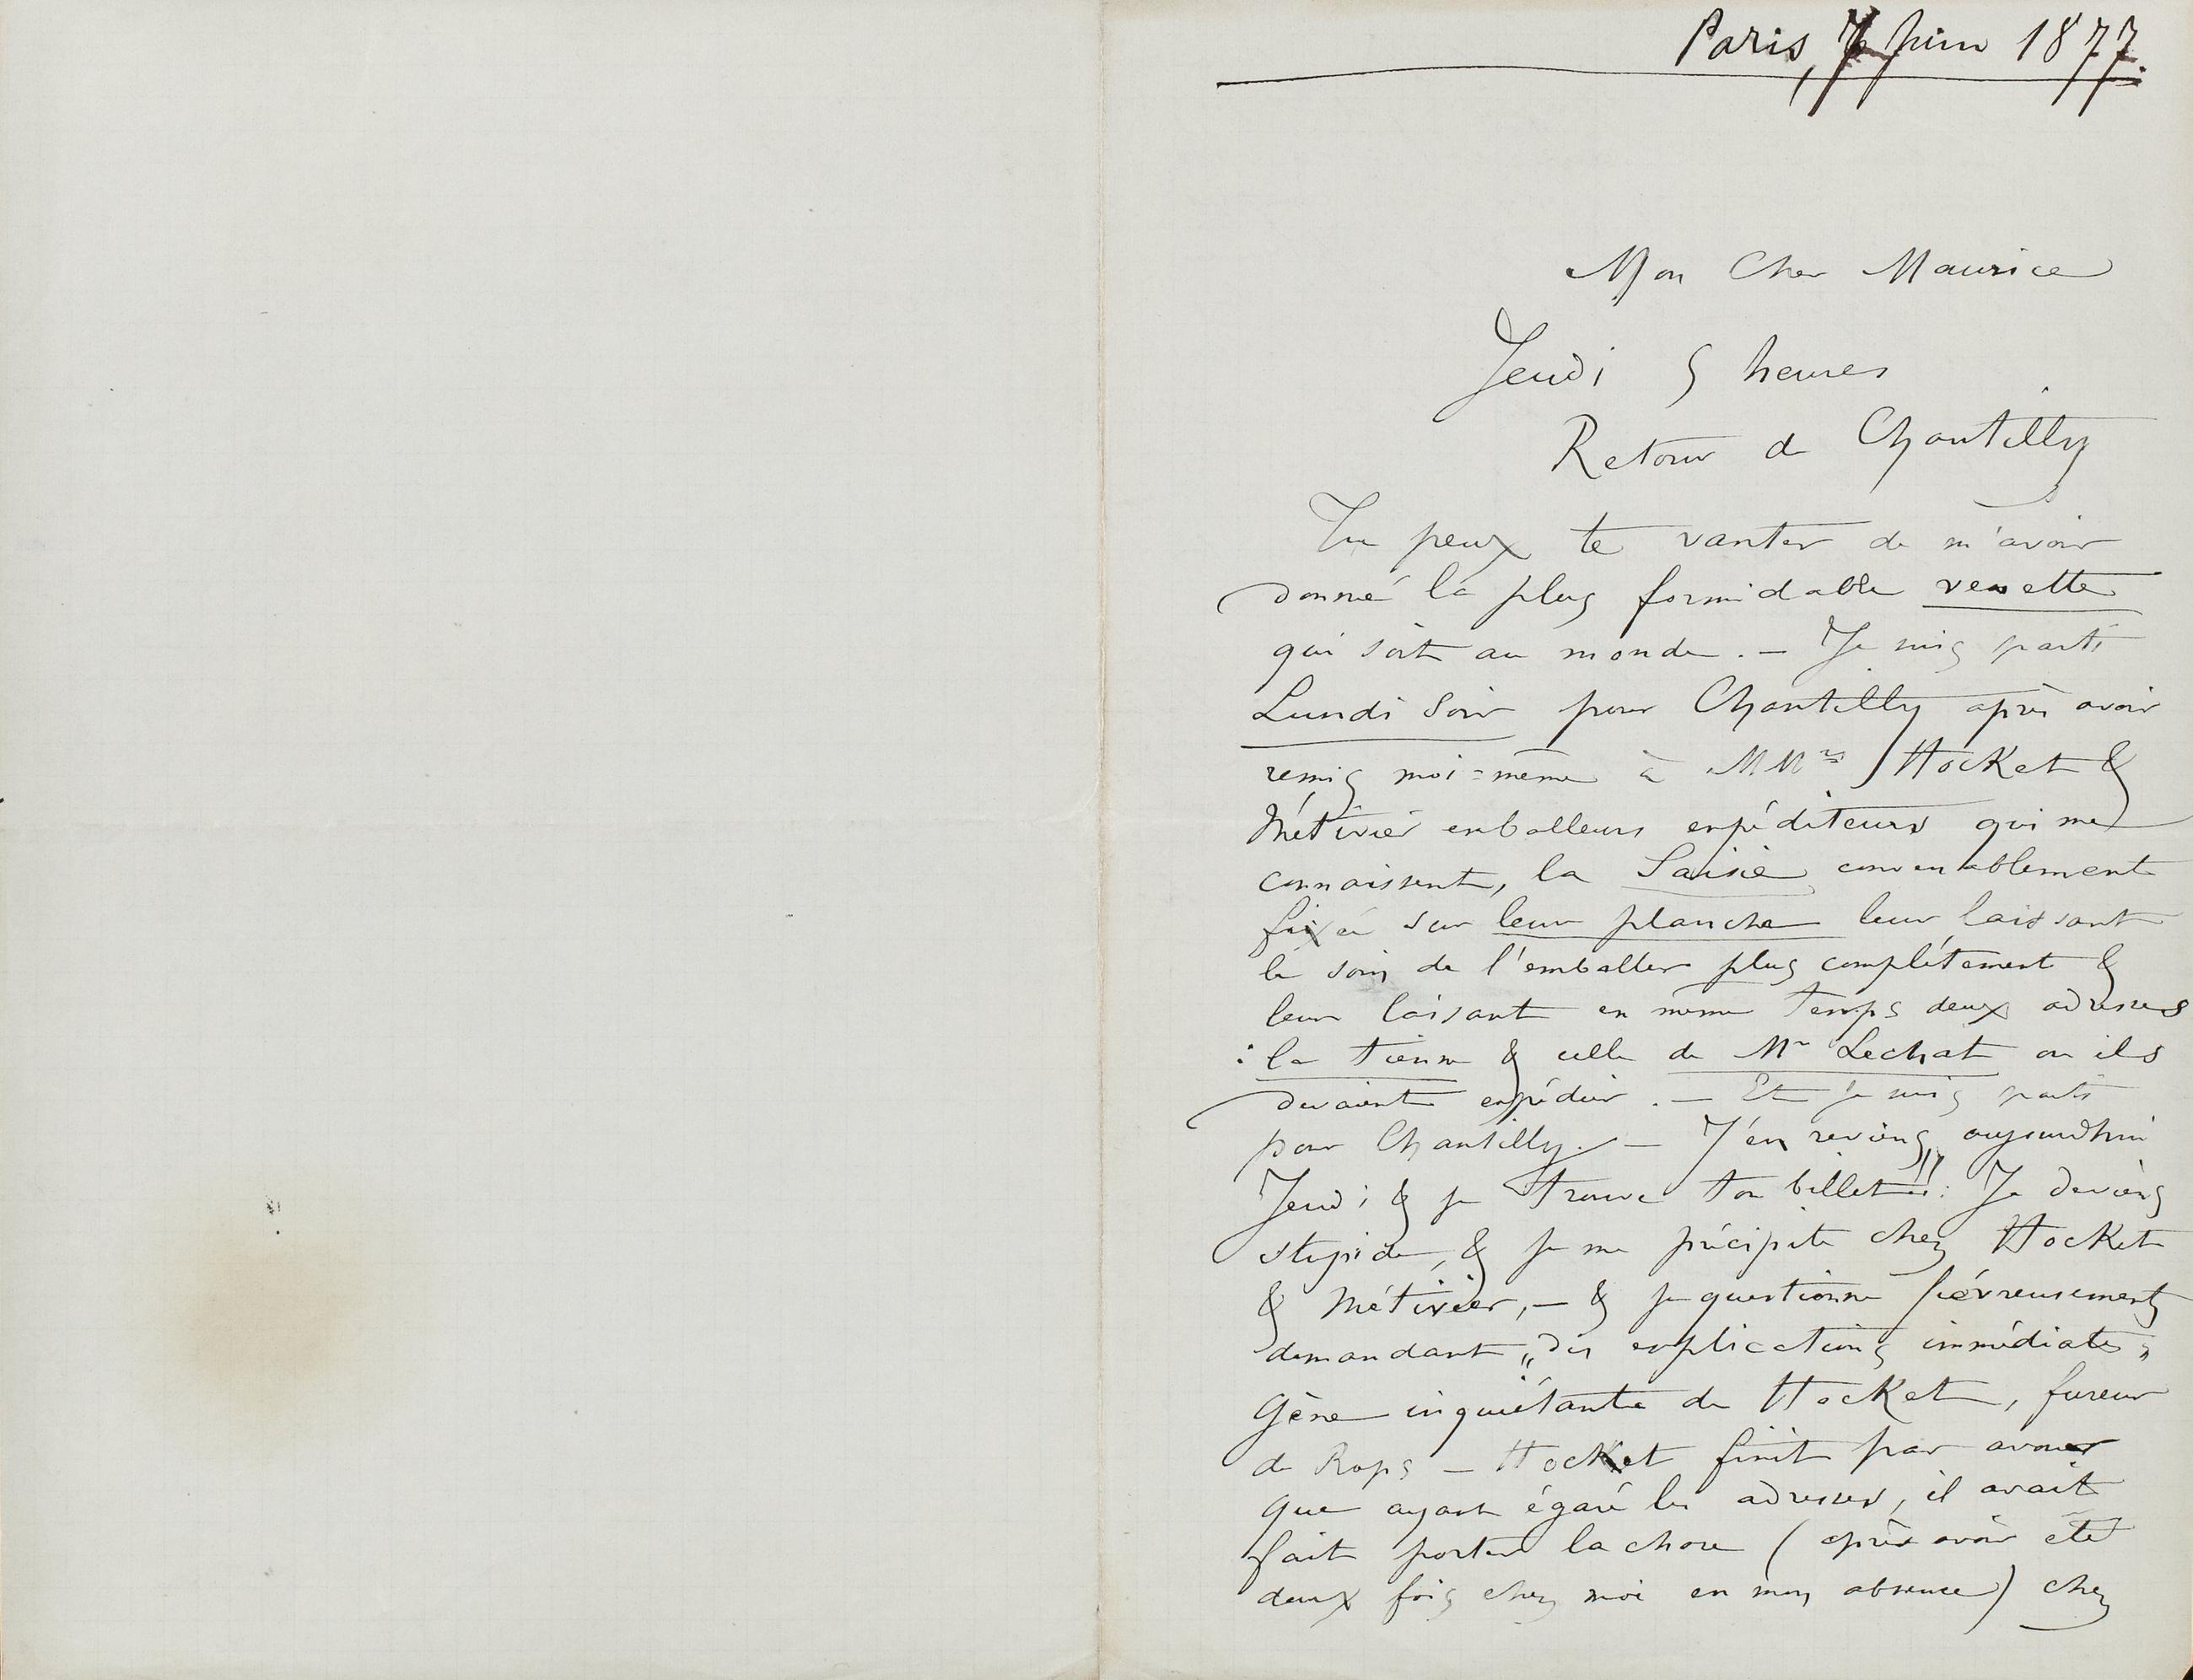 Paris, 7 Juin 1877.
Mon Cher Maurice
Jeudi 5 heures
Retour de Chantilly
Tu peux te vanter de m'avoir
donné la plus formidable venette
qui soit au monde. — Je suis parti
Lundi soir pour Chantilly après avoir
remis moi-même à MMrs Hocket &
Métivier emballeurs expéditeurs qui me
connaissent, la Saisie convenablement
fixée sur leur planche leur laissant
le soin de l'emballer plus complétement &
leur laissant en même temps deux adresses
: la tienne & celle de Mr Lechat ou ils
devaient expédier. — Et je suis parti
pour Chantilly. — J'en reviens, aujourdhui
Jeudi & je trouve ton billet!!: Je deviens
stupide, & je me précipite chez Hocket
& Métivier, — & je questionne fiévreusement
demandant „des explications immédiates„
Gène inquiétante de Hocket, fureur
de Rops — Hocket finit par avouer
que ayant égaré les adresses, il avait
fait porter la chose (après avoir été
deux fois chez moi en mon absence) chez